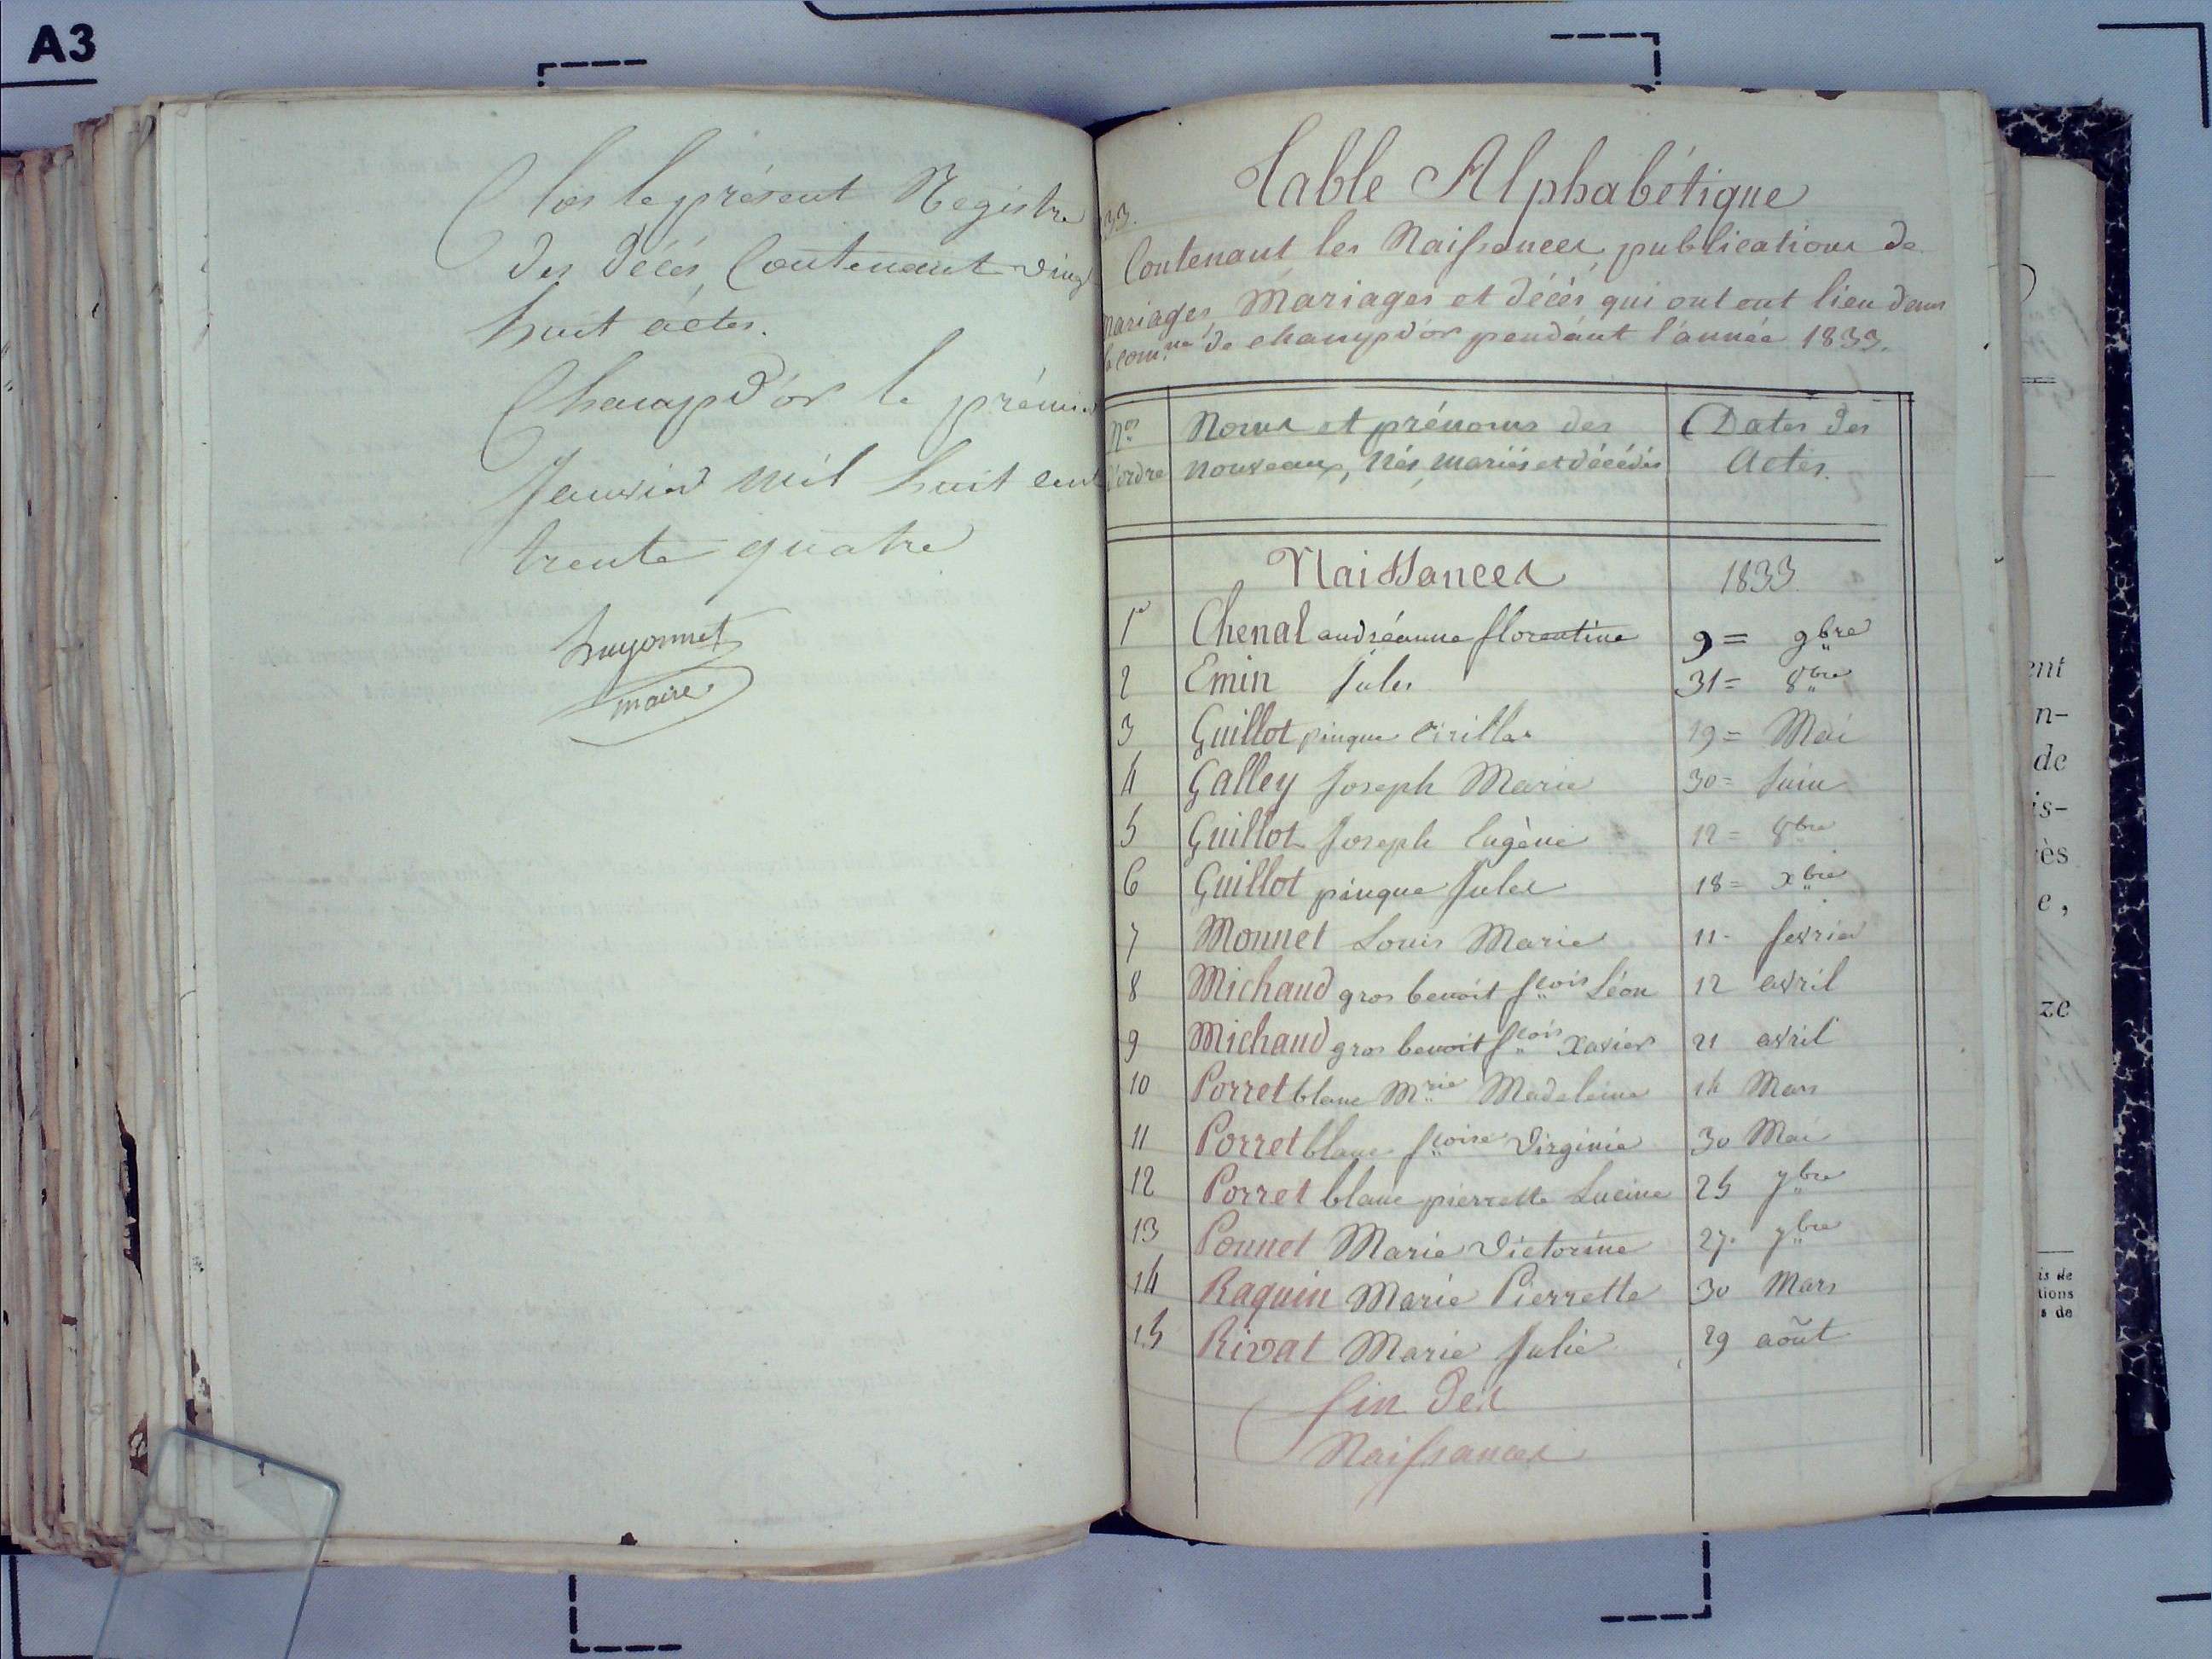 A3
Clos le présent Registre
des décés, Contenant vingt
huit actes.
Champd'or le prémier
Janvier mil huit cent
trente quatre
huyonnet
maire
33.
Table Alphabétique
Contenant les Naissances, publications de
Mariages, Mariages et décés qui ont ont lieu dans
la comne de champd'or pendant l'année 1833.
Nos Noms et prénoms des Dates des
d'ordre nouveaux, Nés, mariés et décédés Actes.
Naissances 1833.
1er Chenal andréanne florentine 9 = 9bre
2 Emin Jules 31 = 8bre
3 Guillot pinque Cirille 19 = Mai
4 Galley Joseph Marie 30 = Juin
5 Guillot Joseph Eugène 12 = 8bre
6 Guillot pinque Jules 18 = xbre
7 Monnet Louis Marie 11 - fevrier
8 Michaud gros benoit fcois Léon 12 avril
9 Michaud gros benoit fcois Xavier 21 avril
10 Porret blanc Mrie Madeleine 14 Mars
11 Porret blanc fcoise Virginie 30 Mai
12 Porret blanc pierrette Lucine 25 7bre
13 Ponnet Marie Victorine 27. 7bre
14 Raquin Marie Pierrette 30 Mars
15 Rivat Marie Julie 29 août
fin des
Naissances
ent
n-
de
is-
ès
e,
ze
is de
tions
s de